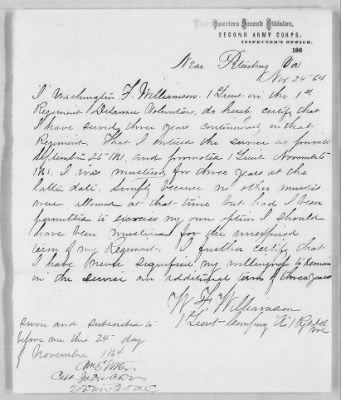 Head Quarters Second Division,
SECOND ARMY CORPS.
INSPECTOR'S OFFICE.
186
Near Petersburg Va
Nov 24 64
I Washington F. Williamson 1 Lieut in the 1st
Regiment Delaware Volunteers, do hereby certify that
I have served three years continuously in that
Regiment. That I entered the service as private
September 25 1861, and promoted 1 Lieut November
1861. I was mustered for three years at the
latter date. Simply because no other musters
were allowed at that time but had I been
permitted to exercise my own option I should
have been mustered for the unexpired
term of my Regiment. I further certify that
I have never signified my willingness to remain
in the service an additional term of three years
W. F. Williamson
1 Lieut Company "A" 1 Rgt Del
Sworn and subscribed to
before me this 24" day
of November 1864
Capt